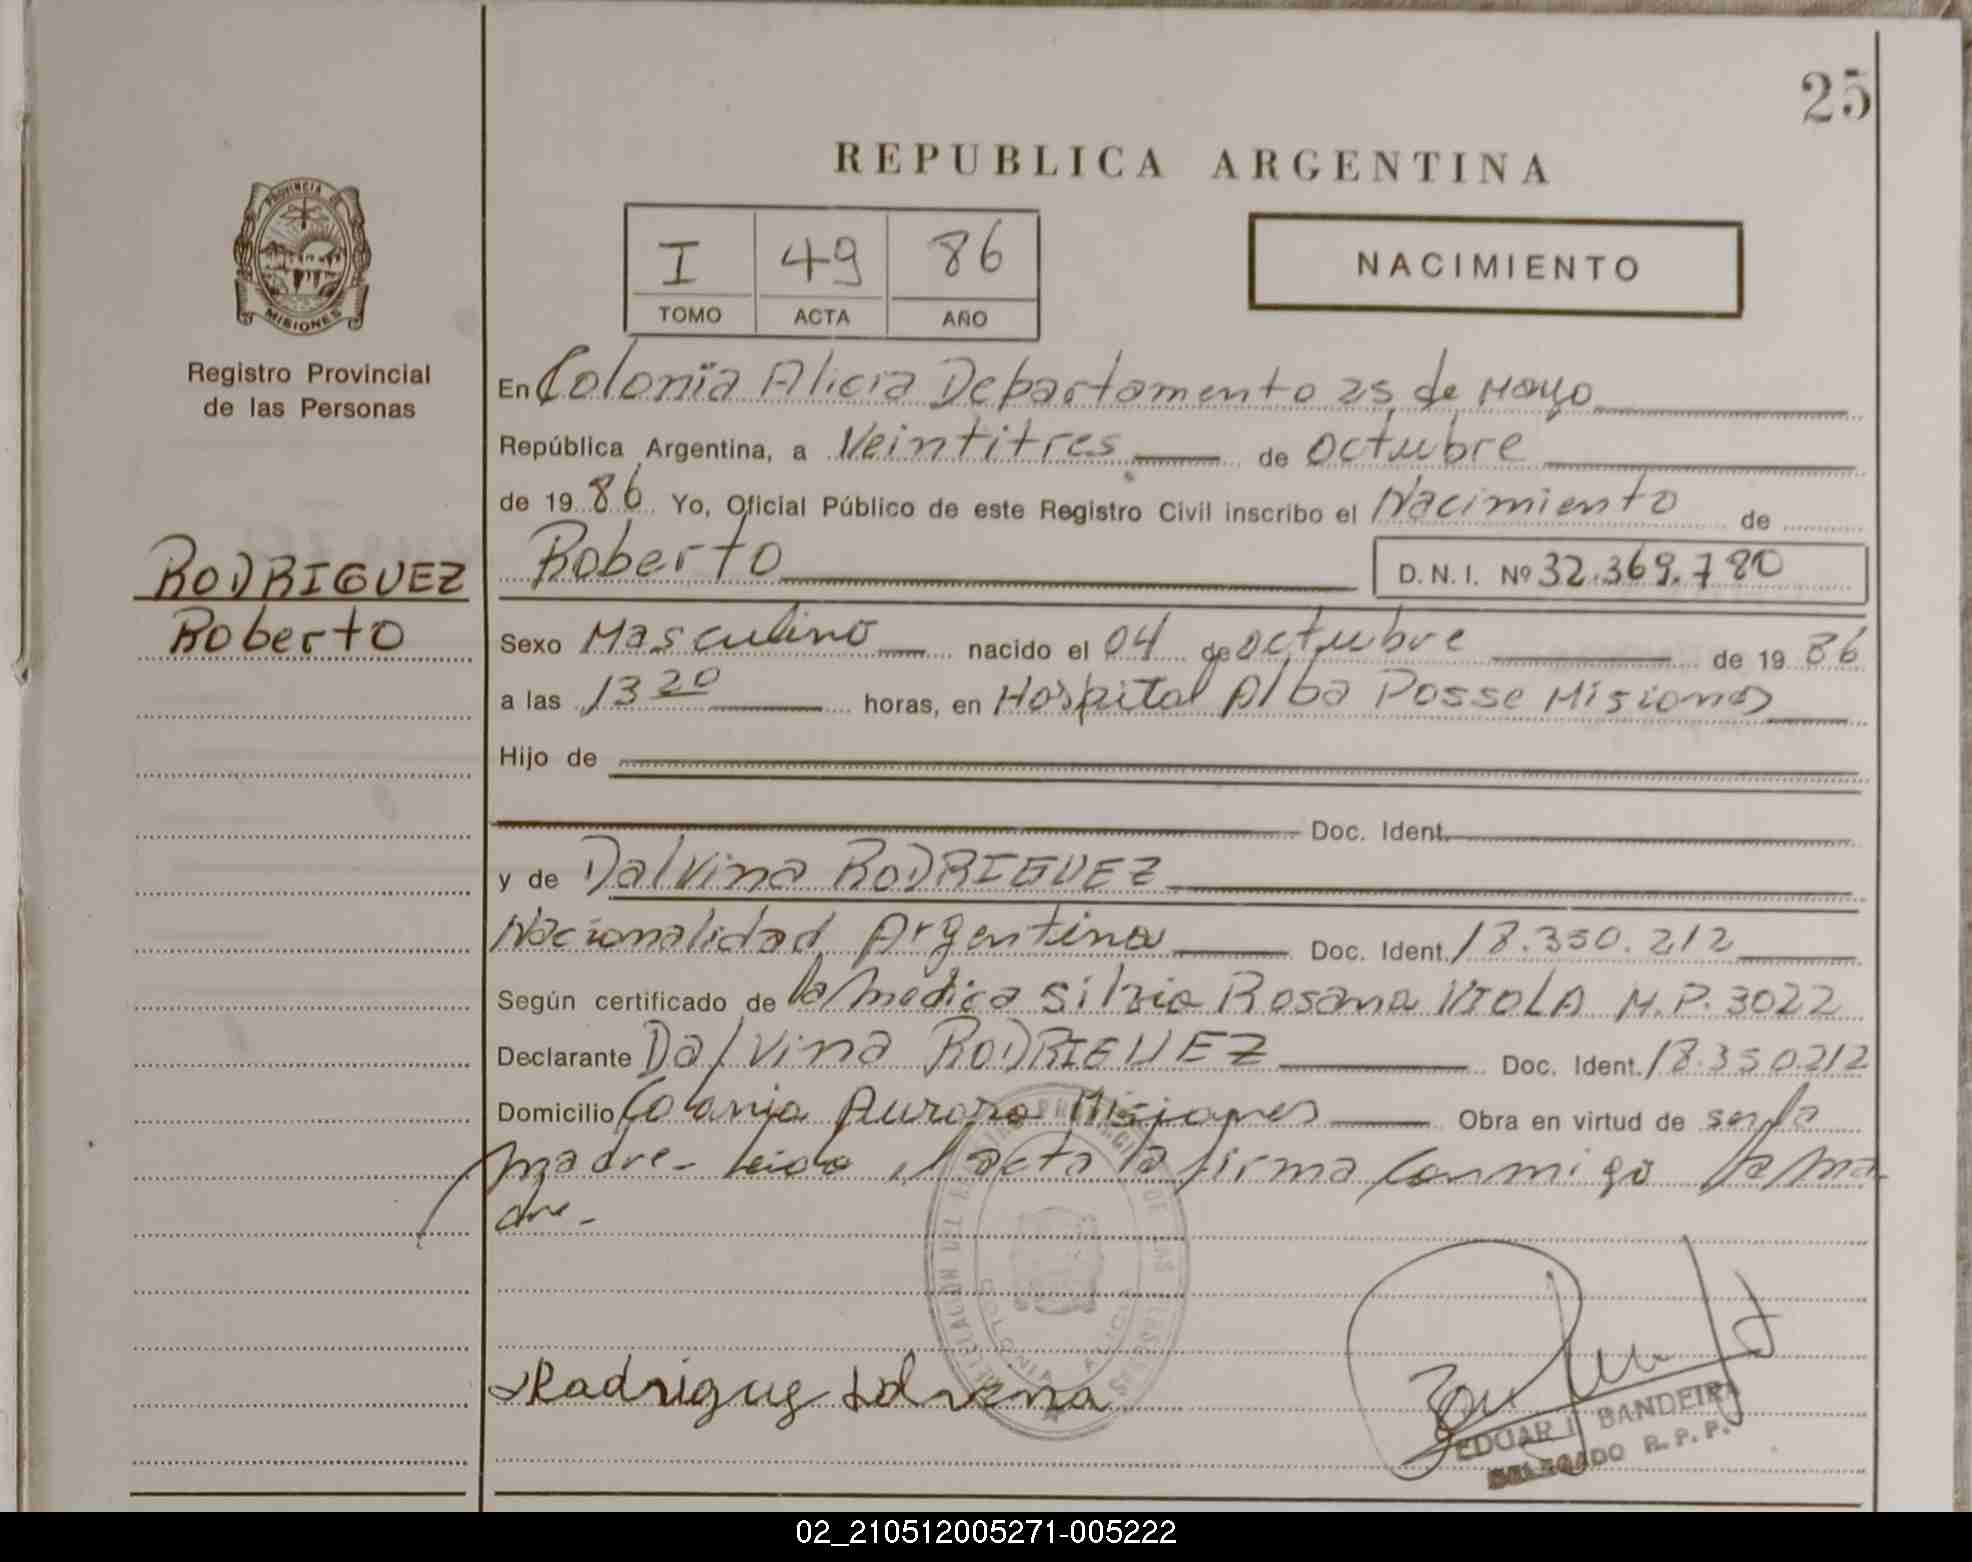 25
REPUBLICA ARGENTINA
PROVINCIA DE
MISIONES
Registro Provincial
de las Personas
I 49 86
TOMO ACTA AÑO
NACIMIENTO
En Colonia Alicia Departamento 25 de Mayo
República Argentina, a Veintitres de octubre
de 1986 Yo, Oficial Público de este Registro Civil inscribo el Nacimiento de
RODRIGUEZ
Roberto
Roberto D.N.I. Nº 32.369.780
Sexo Masculino nacido el 04 de octubre de 1986
a las 13 20 horas, en Hospital Alba Posse Misiones
Hijo de
Doc. Ident.
y de Dalvina RODRIGUEZ
Nacionalidad Argentina Doc. Ident. 18.350.212
Según certificado de la medica Silvia Rosana VIOLA M.P. 3022
Declarante Dalvina RODRIGUEZ Doc. Ident. 18.350212
Domicilio Colonia Aurora Misiones Obra en virtud de ser la
madre- leida el acta la firma conmigo la ma-
dre-
DELEGACION DEL REGISTRO PROVINCIAL DE LAS PERSONAS
COLONIA ALICIA
Rodrigues
EDUAR BANDEIRA
DELEGADO R.P.P.
02_210512005271-005222